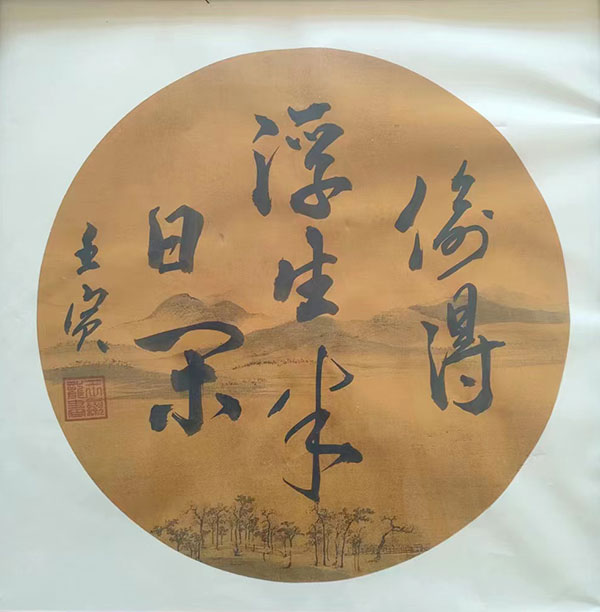 偷得
浮生半
日闲
壬寅